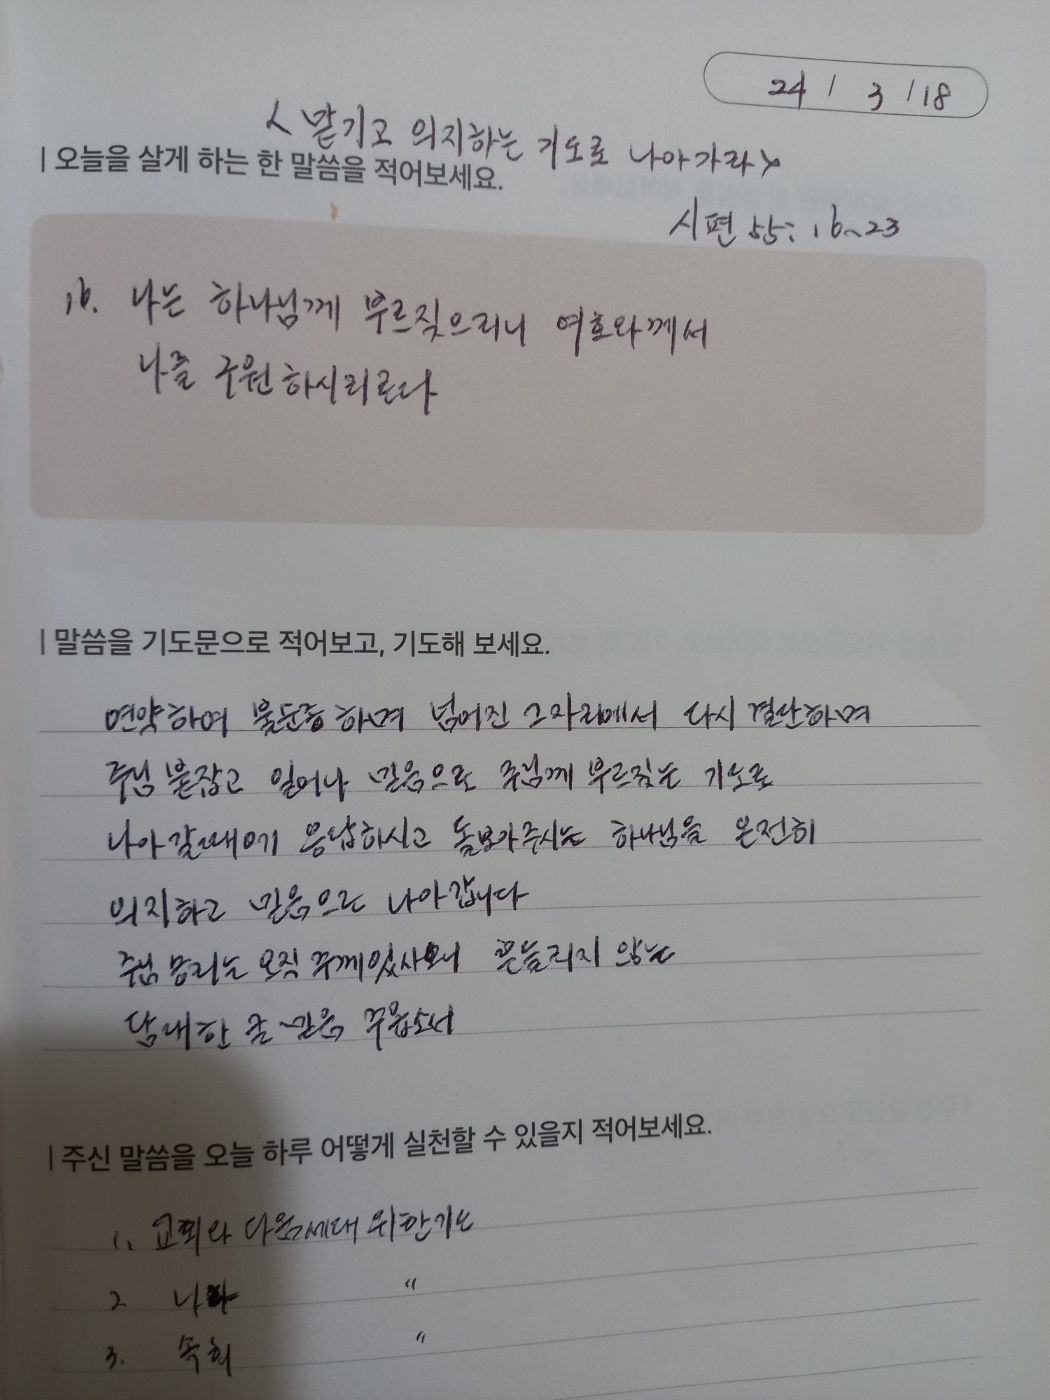 24 / 3 / 18
<맡기고 의지하는 기도로 나아가라>
| 오늘을 살게 하는 한 말씀을 적어보세요.
시편 55: 16~23
16. 나는 하나님께 부르짖으리니 여호와께서
나를 구원하시리로다
| 말씀을 기도문으로 적어보고, 기도해 보세요.
연약하여 몸도둥하며 넘어진 그자리에서 다시 결단하며
주님 붙잡고 일어나 믿음으로 주님께 부르짖는 기도로
나아갈때에 응답하시고 돌보아주시는 하나님을 온전히
의지하고 믿음으로 나아갑니다
주님 승리는 오직 주께있사오니 흔들리지 않는
담대한 큰 믿음 주옵소서
| 주신 말씀을 오늘 하루 어떻게 실천할 수 있을지 적어보세요.
1. 교회와 다음세대 위한기도
2 나 "
3. 속회 "